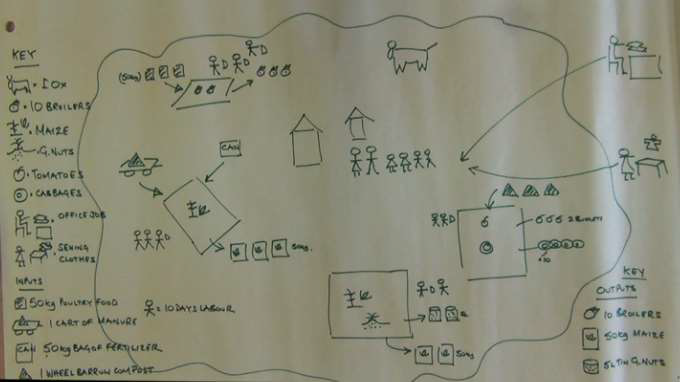 KEY
= 1 OX
= 10 BROILERS
= MAIZE
= G.NUTS
= TOMATOES
= CABBAGES
= OFFICE JOB
= SEWING CLOTHES
INPUTS
50kg POULTRY FOOD
1 CART OF MANURE
CAN 50kg BAG OF FERTILIZER
1 WHEELBARROW COMPOST
= 10 DAYS LABOUR
(50kg)
D
D D
CAN
D
50kg.
D
D
50kg
KEY
OUTPUTS
10 BROILERS
50kg MAIZE
5L TIN G.NUTS